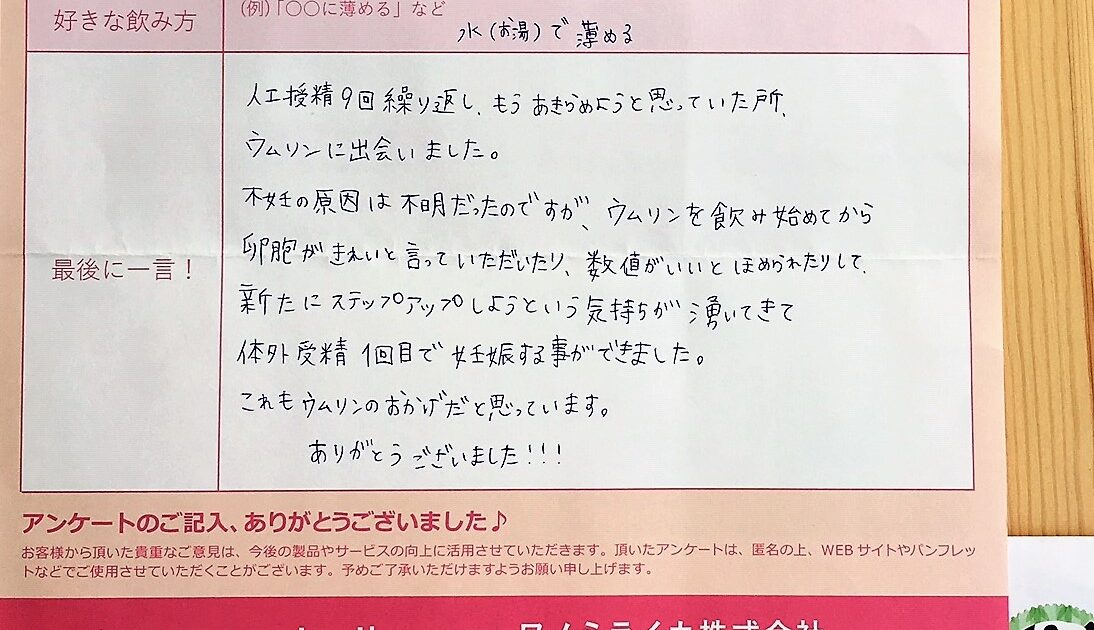 (例)「〇〇に薄める」など
好きな飲み方
水(お湯)で薄める
人工授精9回繰り返し、もうあきらめようと思っていた所、
ウムリンに出会いました。
不妊の原因は不明だったのですが、ウムリンを飲み始めてから
卵胞がきれいと言っていただいたり、数値がいいとほめられたりして、
最後に一言！
新たにステップアップしようという気持ちが湧いてきて
体外受精1回目で妊娠する事ができました。
これもウムリンのおかげだと思っています。
ありがとうございました!!!
アンケートのご記入、ありがとうございました♪
お客様から頂いた貴重なご意見は、今後の製品やサービスの向上に活用させていただきます。頂いたアンケートは、匿名の上、WEBサイトやパンフレッ
トなどでご使用させていただくことがございます。予めご了承いただけますようお願い申し上げます。